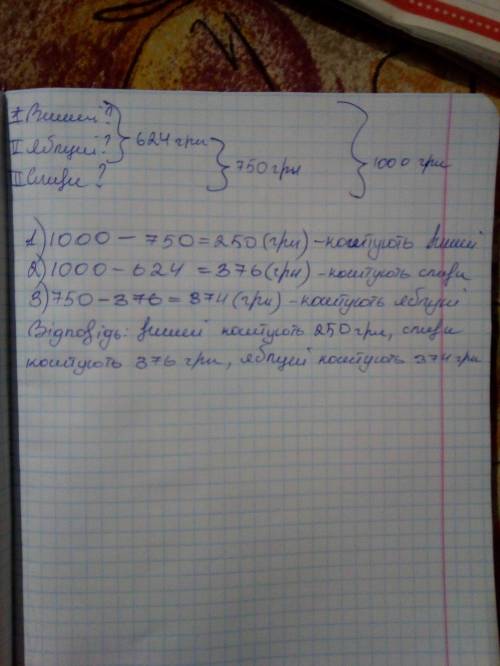 I Вишні ?
II Яблуні ? } 624 грн } 750 грн } 1000 грн
III Сливи ?
1) 1000 – 750 = 250 (грн) – коштують вишні
2) 1000 – 624 = 376 (грн) – коштують сливи
3) 750 – 376 = 374 (грн) – коштують яблуні
Відповідь: вишні коштують 250 грн, сливи
коштують 376 грн, яблуні коштують 374 грн